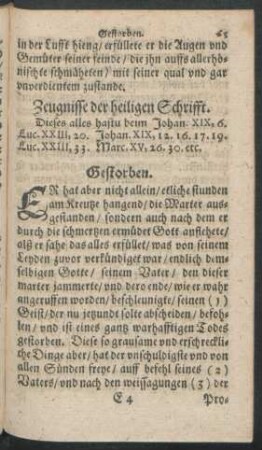 Gestorben. 65
in der Lufft hieng/ erfüllete er die Augen vnd
Gemüter seiner feinde/ die jhn auffs allerhö-
nischte schmäheten/ mit seiner qual vnd gar
vnverdientem zustande.
Zeugnisse der heiligen Schrifft.
Dieses alles hastu beim Johan. XIX, 6.
Luc. XXIII, 20. Johan. XIX, 12. 16. 17. 19.
Luc. XXIII, 33. Marc. XV, 26. 30. etc.
Gestorben.
ER hat aber nicht allein/ etliche stunden
am Kreutze hangend/ die Marter aus-
gestanden/ sondern auch nach dem er
durch die schmertzen ermüdet Gott anflehete/
als er sahe das alles erfüllet/ was von seinem
Leyden zuvor verkündiget war/ endlich dem-
selbigen Gotte/ seinem Vater/ den dieser
marter jammerte/ vnd dero ende/ wie er wahr
angeruffen worden/ beschleunigte/ seinen (1)
Geist/ der nu jetzund solte abscheiden/ befoh-
len/ vnd ist eines gantz warhafftigen Todes
gestorben. Diese so grausame vnd erschreckli-
che Dinge aber/ hat der vnschuldigste vnd von
allen Sünden freye/ auff befehl seines (2)
Vaters/ vnd nach den weissagungen (3) der
E 4 Pro-